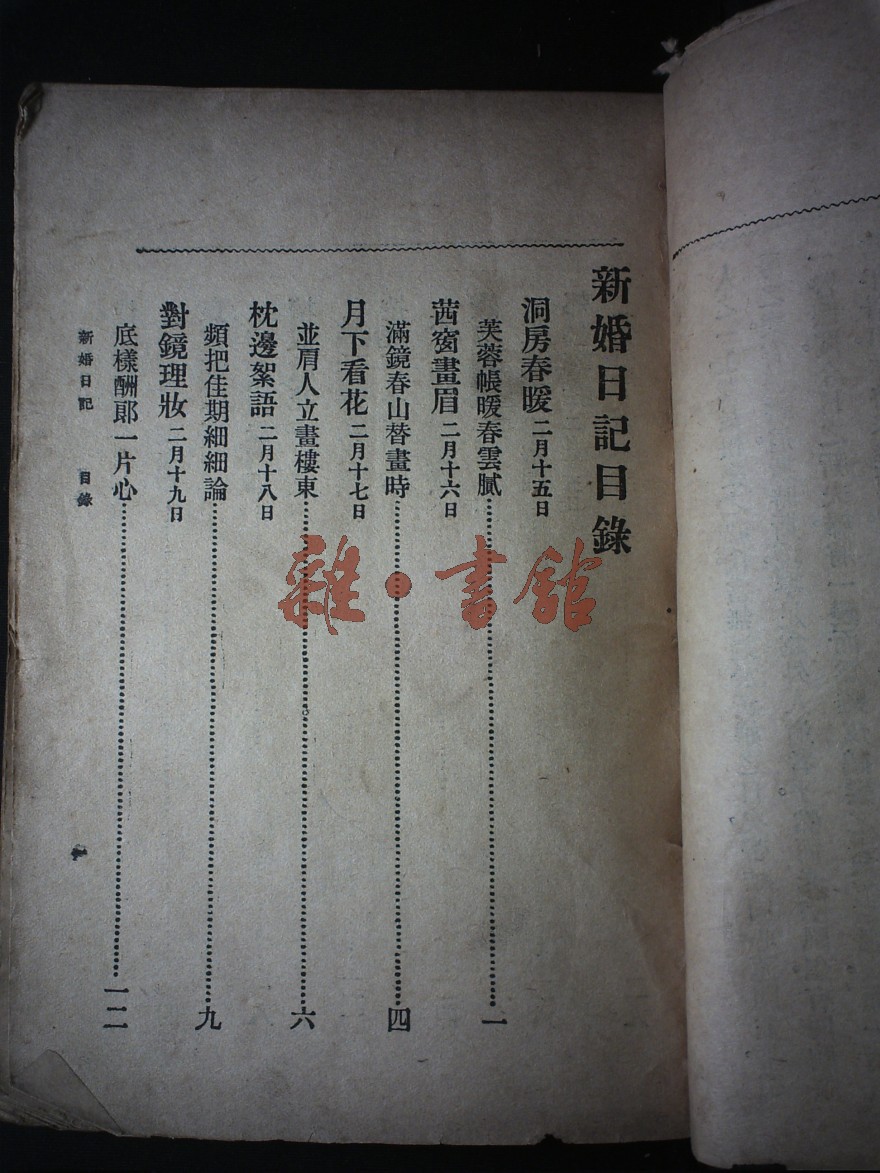 新婚日記目錄
洞房春暖 二月十五日
芙蓉帳暖春雲膩……一
茜窗畫眉 二月十六日
滿鏡春山替畫時……四
月下看花 二月十七日
並肩人立畫樓東……六
枕邊絮語 二月十八日
頻把佳期細細論……九
對鏡理妝 二月十九日
底樣酬郎一片心……一二
新婚日記 目錄
一
雜·書館